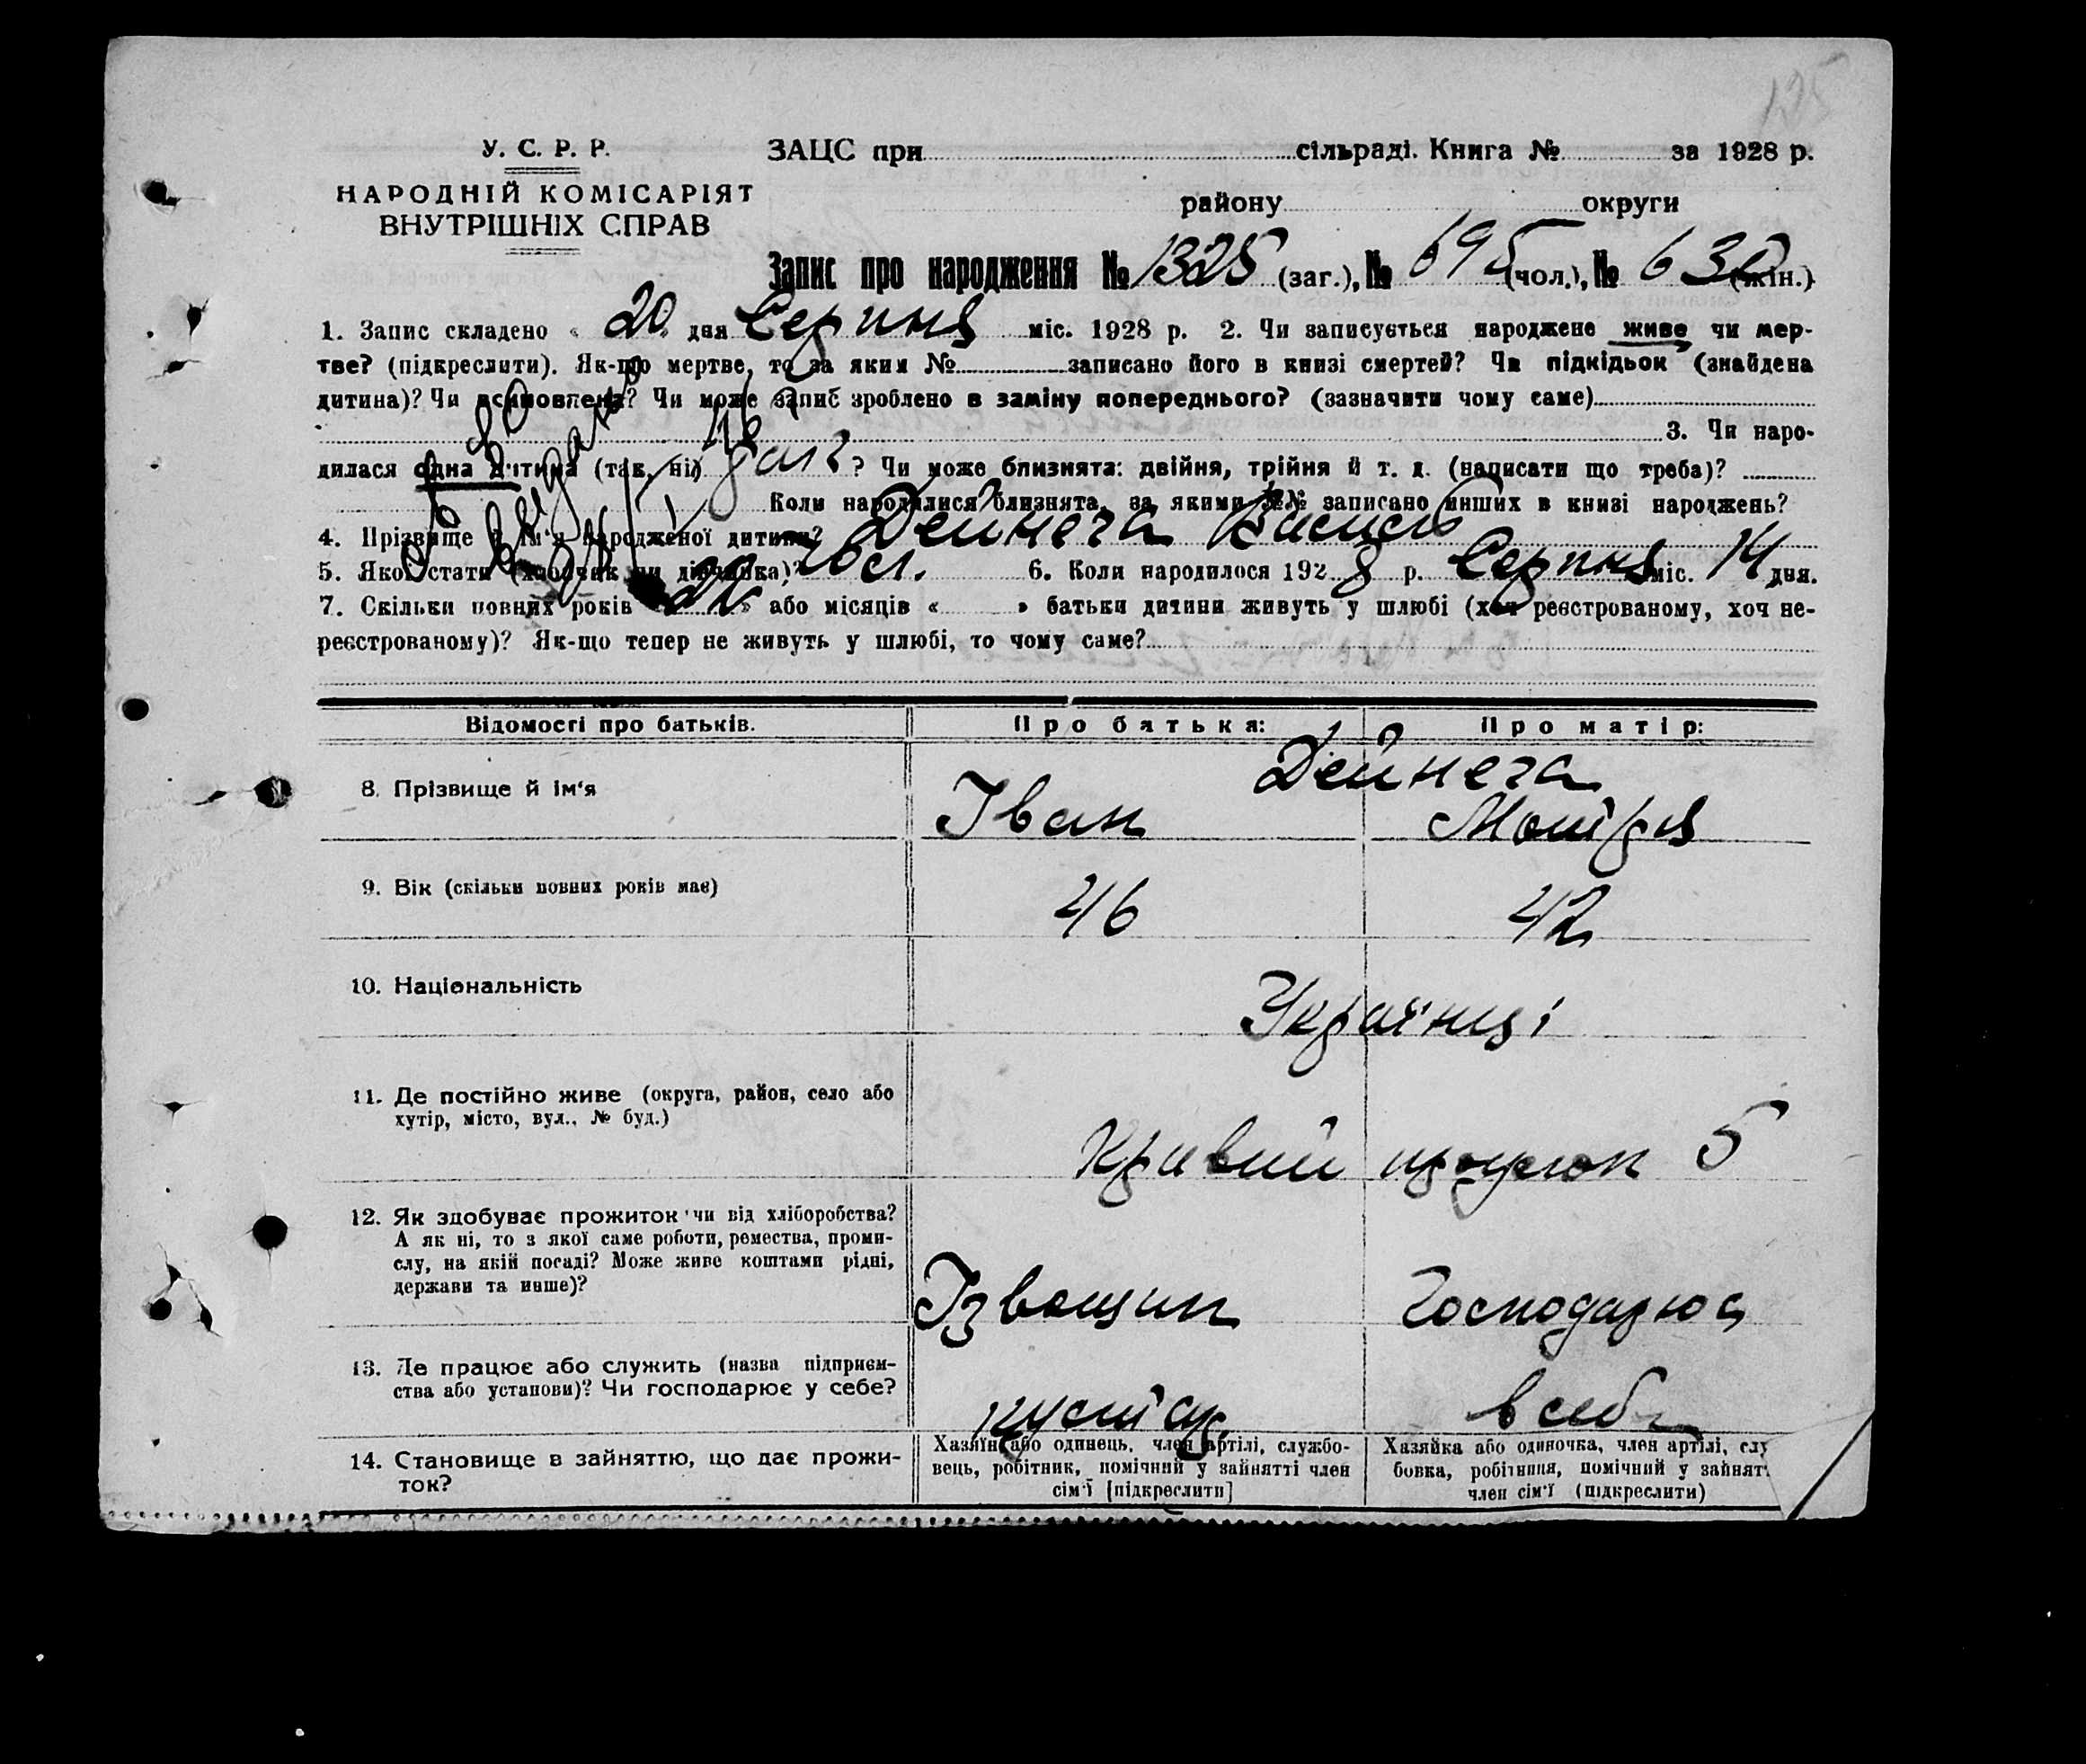 125
У. С. Р. Р.
НАРОДНІЙ КОМІСАРІЯТ
ВНУТРІШНІХ СПРАВ
ЗАЦС при сільраді. Книга № за 1928 р.
району округи
Запис про народження № 1325 (заг.), № 695 (чол.), № 630 (жін.)
1. Запис складено « 20 » дня Серпня міс. 1928 р. 2. Чи записується народжене живе чи мер-
тве? (підкреслити). Як-що мертве, то за яким № записано його в книзі смертей? Чи підкідьок (знайдена
дитина)? Чи всиновлена? Чи може запис зроблено в заміну попереднього? (зазначити чому саме)
3. Чи наро-
дилася одна дитина (так, ні) ? Чи може близнята: двійня, трійня й т. д. (написати що треба)?
Коли народилися близнята, за якими №№ записано инших в книзі народжень?
4. Прізвище й ім'я народженої дитини? Дейнега Василь
5. Якої статі (хлопчик чи дівчинка)? чол. 6. Коли народилося 1928 р. Серпня міс. 14 дня.
7. Скільки повних років « 20 » або місяців « » батьки дитини живуть у шлюбі (хоч реєстрованому, хоч не-
реєстрованому)? Як-що тепер не живуть у шлюбі, то чому саме?
Відомості про батьків. Про батька: Про матір:
Дейнега
8. Прізвище й ім'я Іван Мотря
9. Вік (скільки повних років має) 46 42
10. Національність Українці
11. Де постійно живе (округа, район, село або
хутір, місто, вул., № буд.)
Кривий 5
12. Як здобуває прожиток чи від хліборобства?
А як ні, то з якої саме роботи, ремества, проми-
слу, на якій посаді? Може живе коштами рідні,
держави та инше)?
Ізвощик Господарює
13. Де працює або служить (назва підприєм-
ства або установи)? Чи господарює у себе?
кустар в себе
14. Становище в зайняттю, що дає прожи-
ток?
Хазяїн або одинець, член артілі, службо-
вець, робітник, помічний у зайнятті член
сім'ї [підкреслити]
Хазяйка або одиночка, член артілі, слу
бовка, робітниця, помічний у зайнят
член сім'ї (підкреслити)